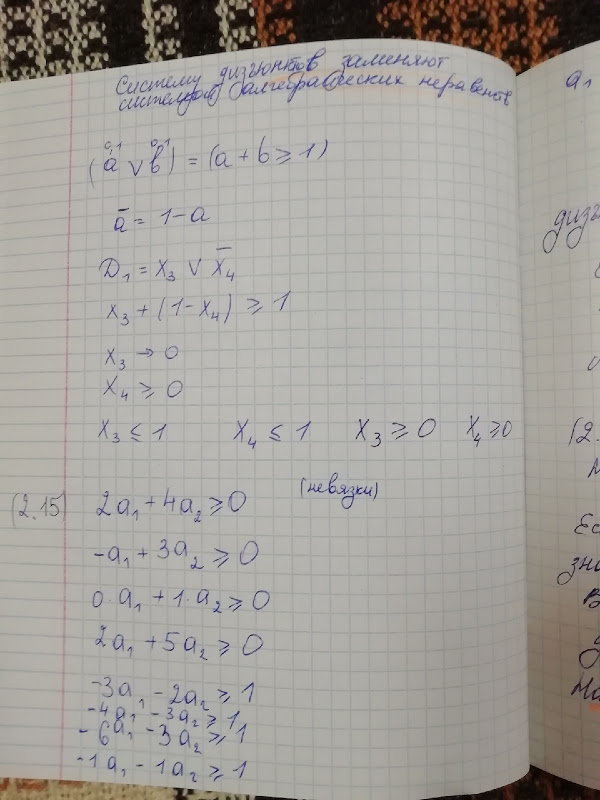 Систему дизъюнктов заменяют
системой алгебраических неравенств
0,1 0,1
(a ∨ b) = (a + b ≥ 1)
a̅ = 1 - a
D₁ = x₃ ∨ x̅₄
x₃ + (1 - x₄) ≥ 1
x₃ → 0
x₄ ≥ 0
x₃ ≤ 1 x₄ ≤ 1 x₃ ≥ 0 x₄ ≥ 0
(невязки)
(2.15) 2a₁ + 4a₂ ≥ 0
-a₁ + 3a₂ ≥ 0
0·a₁ + 1·a₂ ≥ 0
2a₁ + 5a₂ ≥ 0
-3a₁ - 2a₂ ≥ 1
-4a₁ - 3a₂ ≥ 1
-6a₁ - 3a₂ ≥ 1
-1a₁ - 1a₂ ≥ 1
a₁
(2.